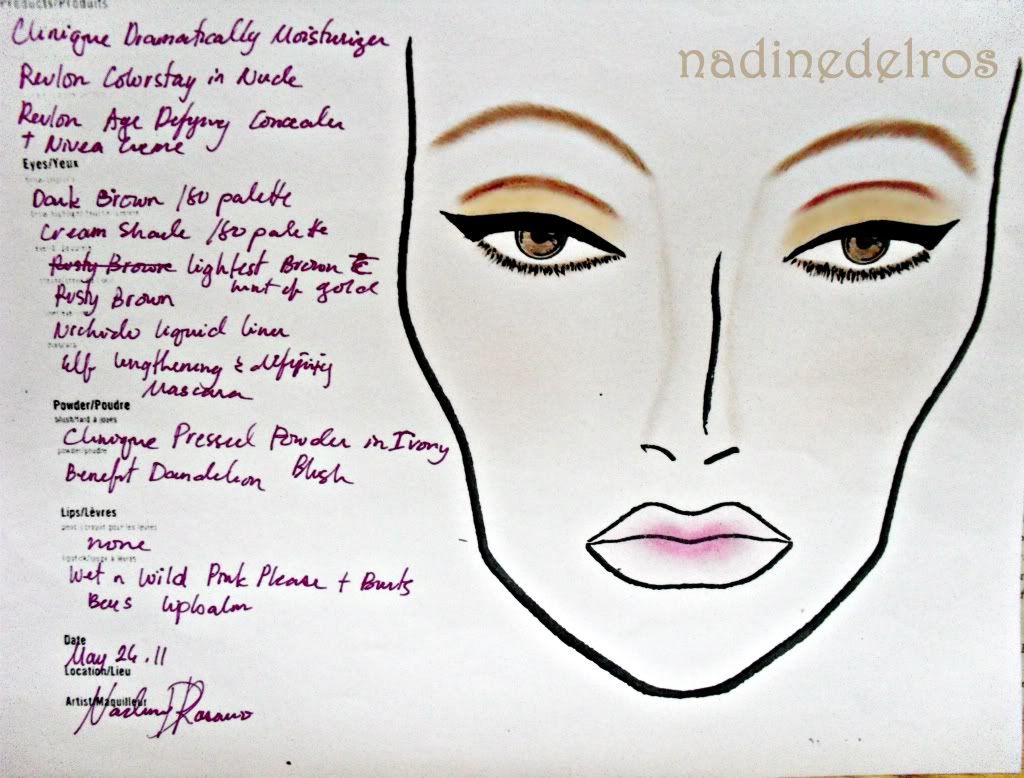 Products/Produits
nadinedelros
Clinique Dramatically Moisturizer
Revlon Colorstay in Nude
Revlon Age Defying Concealer
+ Nivea Creme
Eyes/Yeux
Dark Brown /80 palette
Cream Shade /80 palette
Rusty Brown lightest Brown
hint of gold
Rusty Brown
liquid liner
Elf lengthening & defining
Mascara
Powder/Poudre
blush/fard à joues
Clinique Pressed Powder in Ivory
powder/poudre
Benefit Dandelion Blush
Lips/Lèvres
none
Wet n Wild Pink Please + Burts
Bees lipbalm
Date
May 26.11
Location/Lieu
Artist/Maquilleur